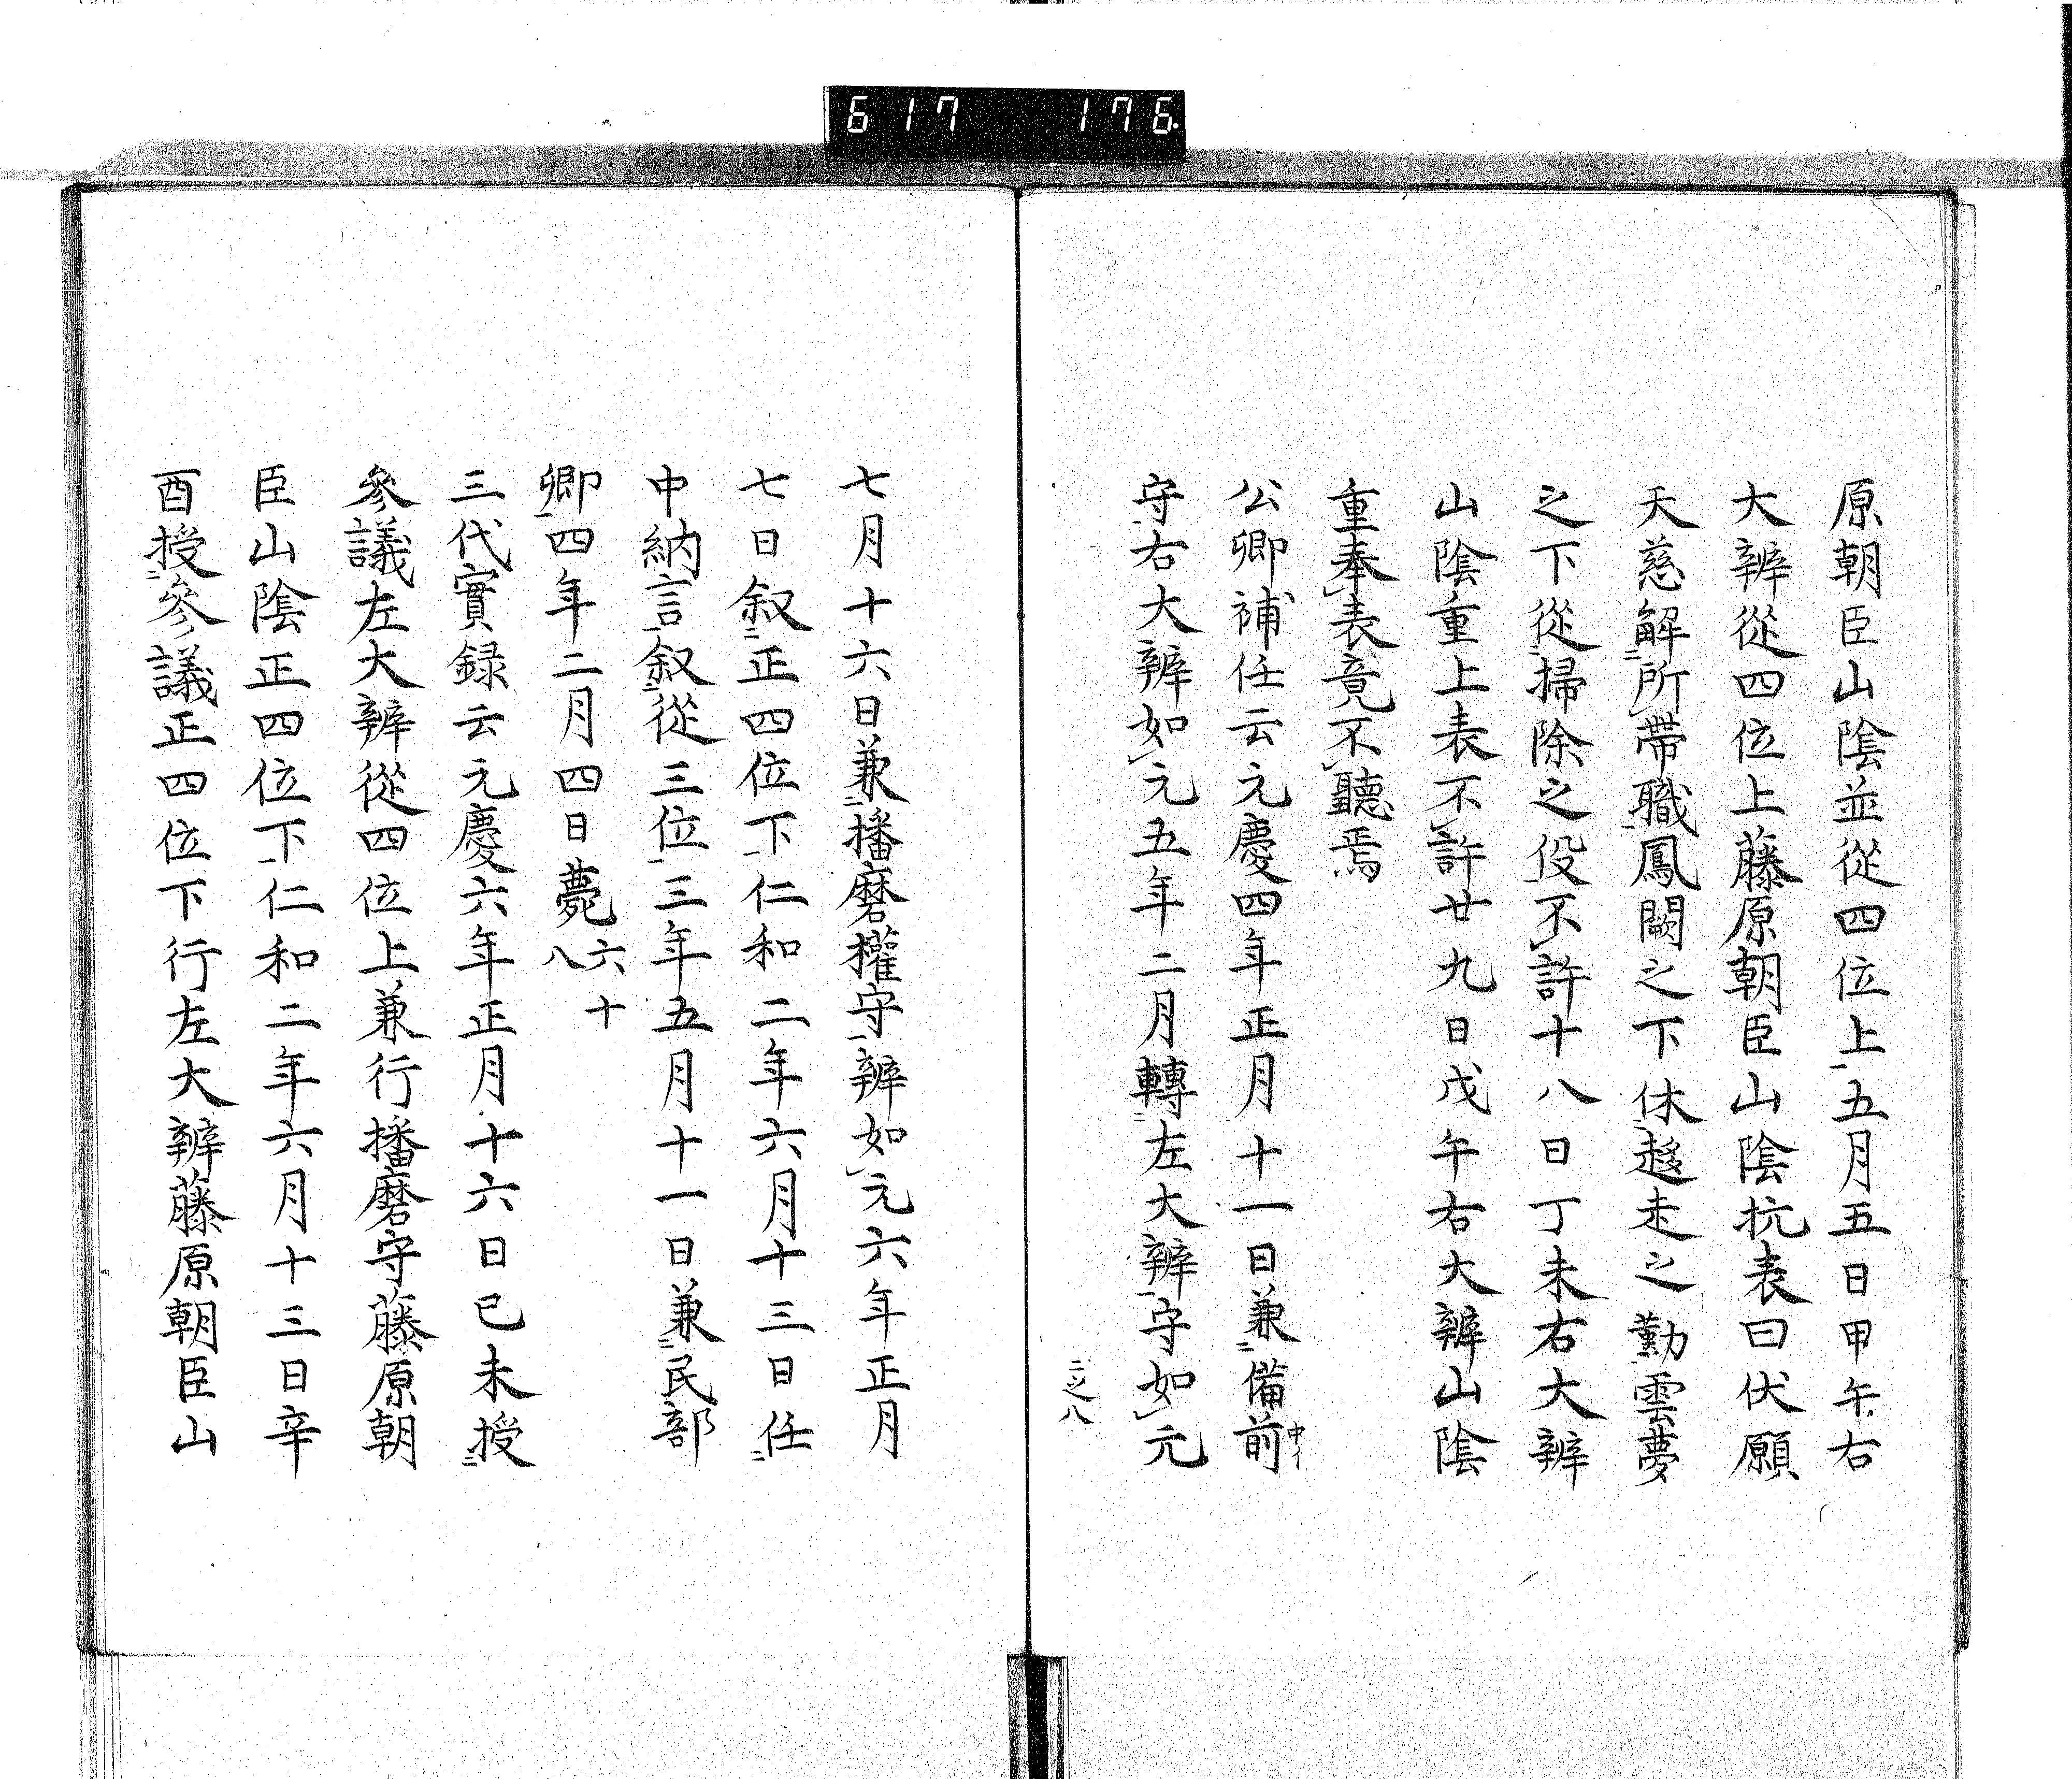 617 176
原朝臣山陰並從四位上五月五日甲午右
大辨從四位上藤原朝臣山陰抗表曰伏願
天慈解所帶職鳳闕之下休趍走之勤雲夢
之下從掃除之役不許十八日丁未右大辨
山陰重上表不許廿九日戊午右大辨山陰
重奉表竟不聽焉
公卿補任云元慶四年正月十一日兼備前中イ
守右大辨如元五年二月轉左大辨守如元
二之八
七月十六日兼播磨權守辨如元六年正月
七日叙正四位下仁和二年六月十三日任
中納言叙從三位三年五月十一日兼民部
卿四年二月四日薨六十八
三代實録云元慶六年正月十六日已未授
參議左大辨從四位上兼行播磨守藤原朝
臣山陰正四位下仁和二年六月十三日辛
酉授參議正四位下行左大辨藤原朝臣山